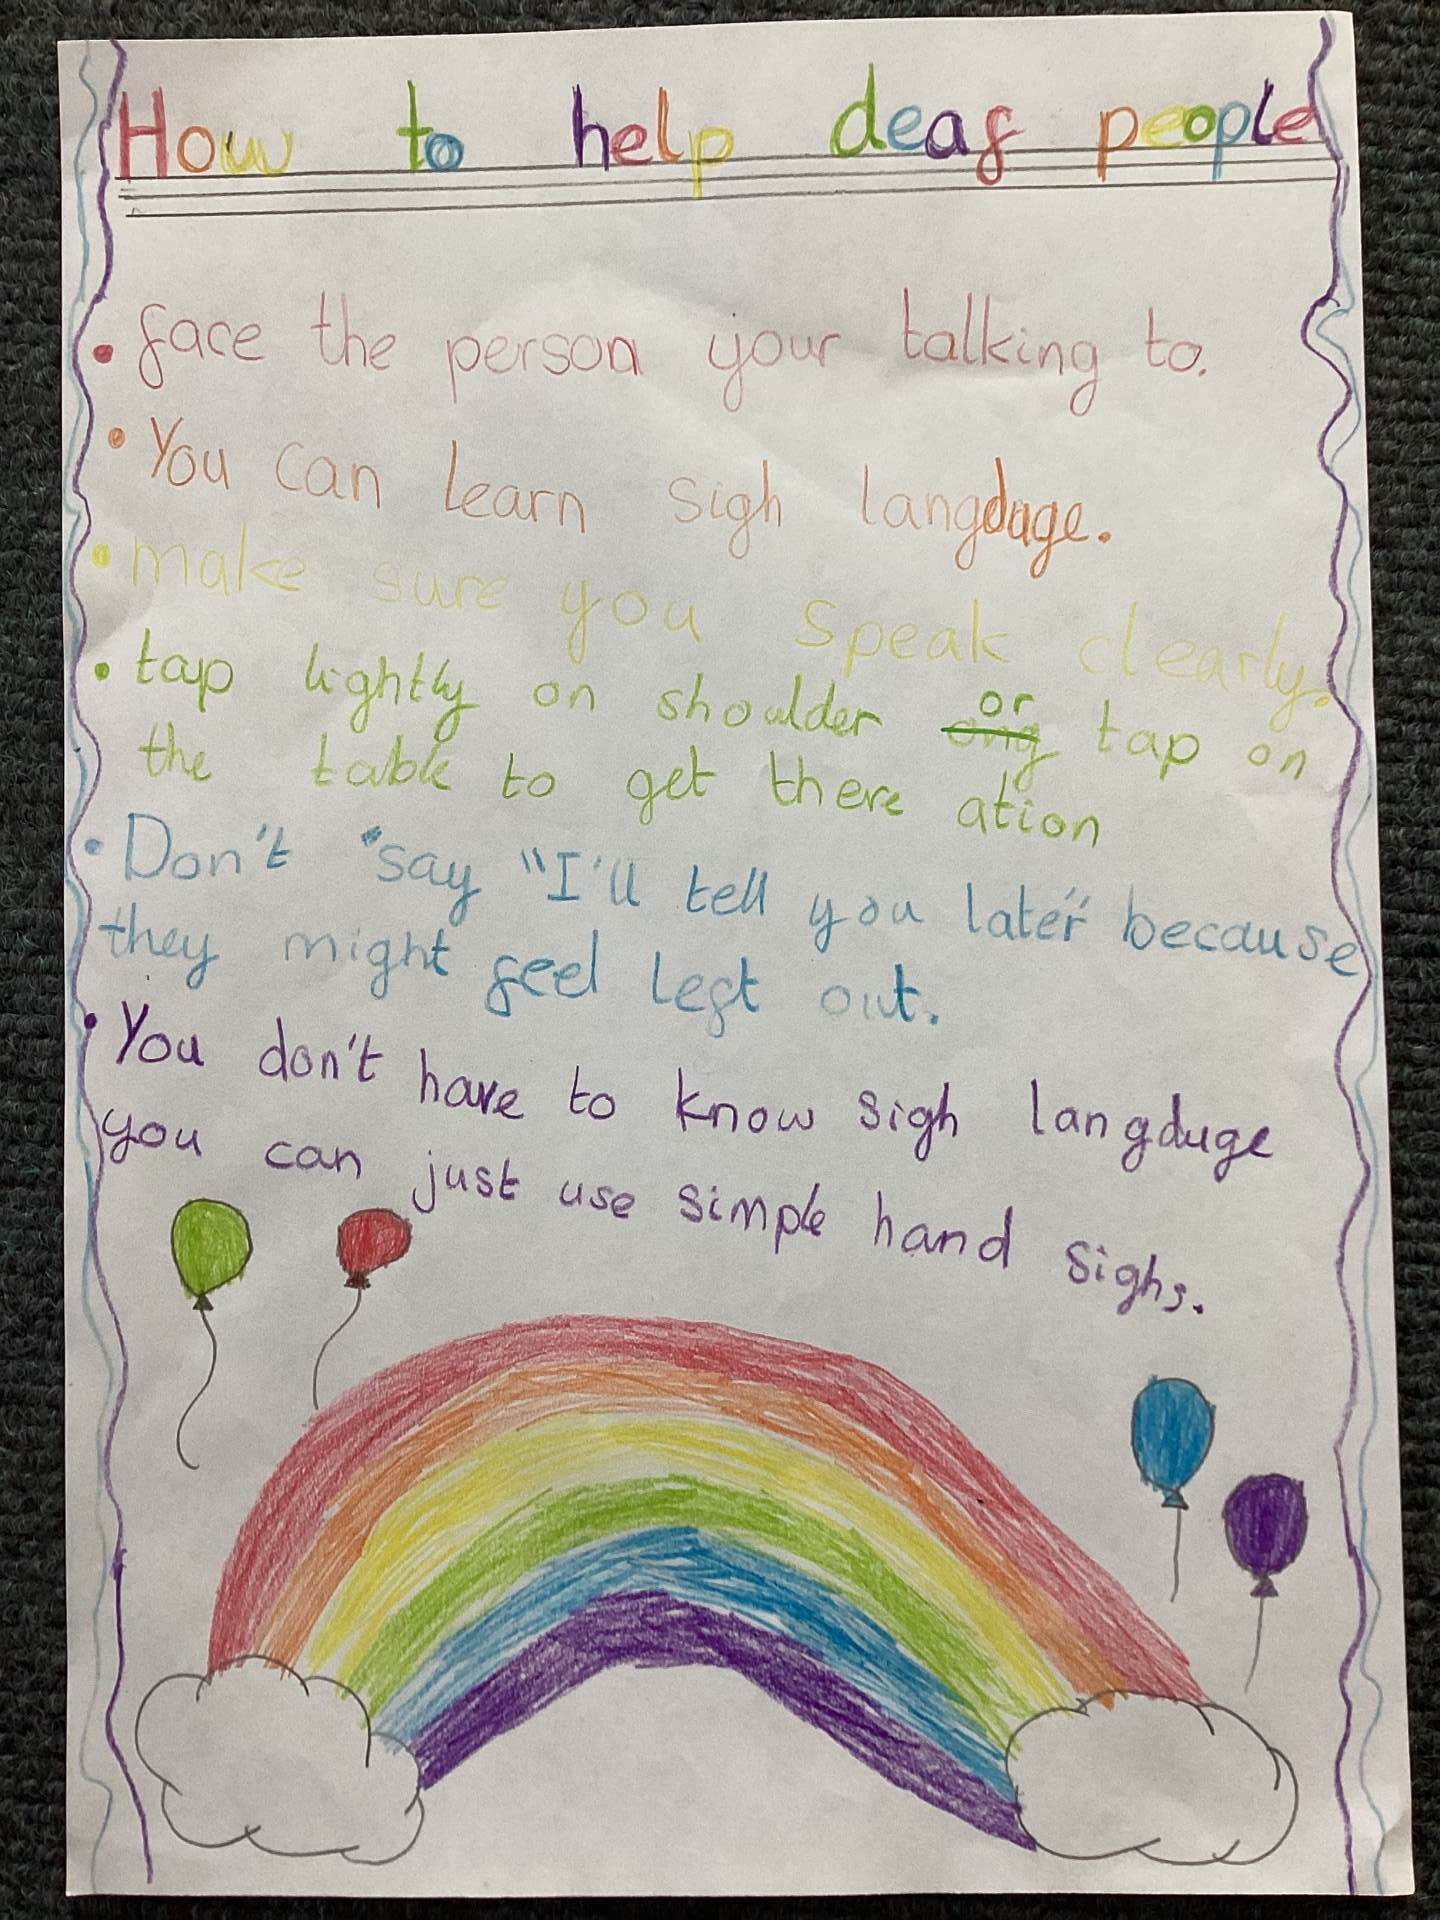 How to help deaf people
• face the person your talking to.
• You can learn sigh langduage.
• make sure you speak clearly.
• tap lightly on shoulder or tap on
the table to get there ation
• Don't "say "I'll tell you later" because
they might feel left out.
• You don't have to know sigh langduge
you can just use simple hand sighs.